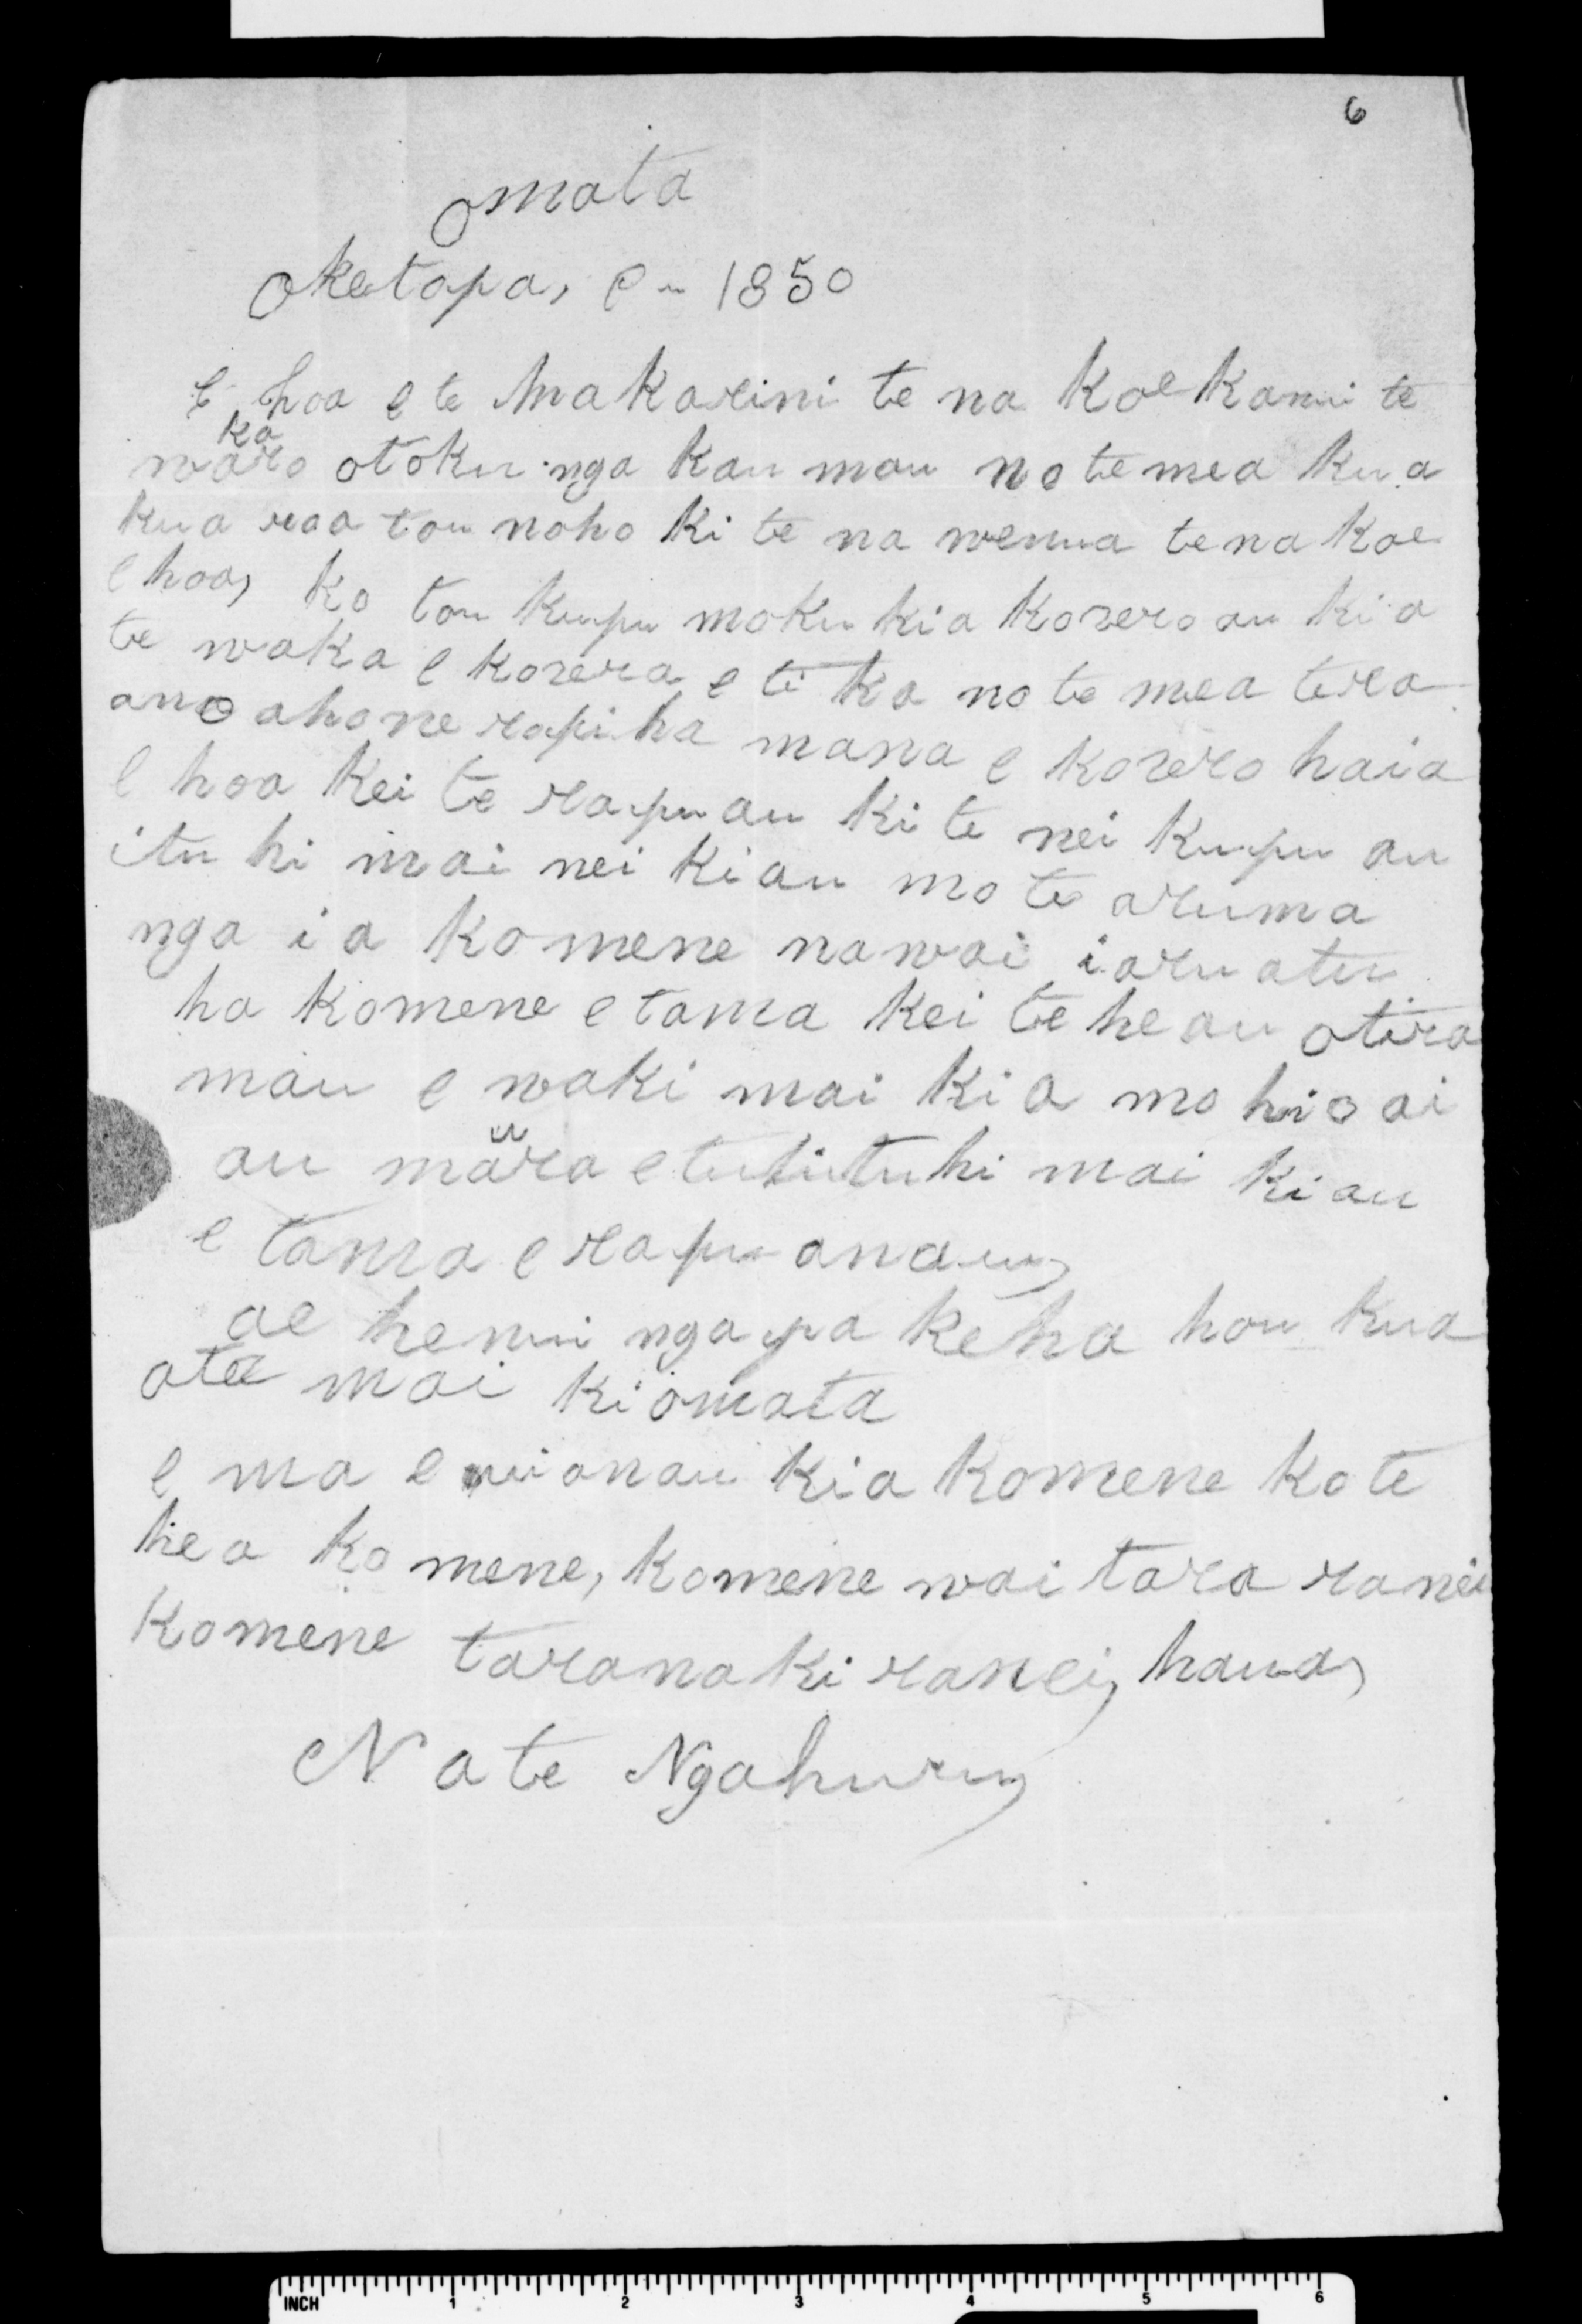 6
omata
oketopa, e - 1850
E hoa e te Makarini te na Koe Kanui te
ka
waro otoku nga Kau mau no te mea Ku a
Kua roa tou noho Ki te na wenua tena Koe
e hoa, Ko tou Kupu moku kia Korero au ki a
te waka e korero e ti ka no te mea tera
ano ahone ropiha mana e Korero haia
e hoa Kei te rapu au Ki te nei Kupu au
itu hi mai nei Ki au mo te aruma
nga i a Komene na wai i aru atu
ha Komene e tama Kei te he au otira
mau e waki mai Ki a mo hio ai
au mara e tuhituhi mai Ki au
u
e tama e rapu anau,
ae henui nga pa Keha hou Kua
atae mai Ki omata
e ma e nui anau Kia Komene Ko te
hea Ko mene, Komene wai tara ranei
Komene taranaki ranei, haua,
Na te Ngahuru,
INCH 1 2 3 4 5 6